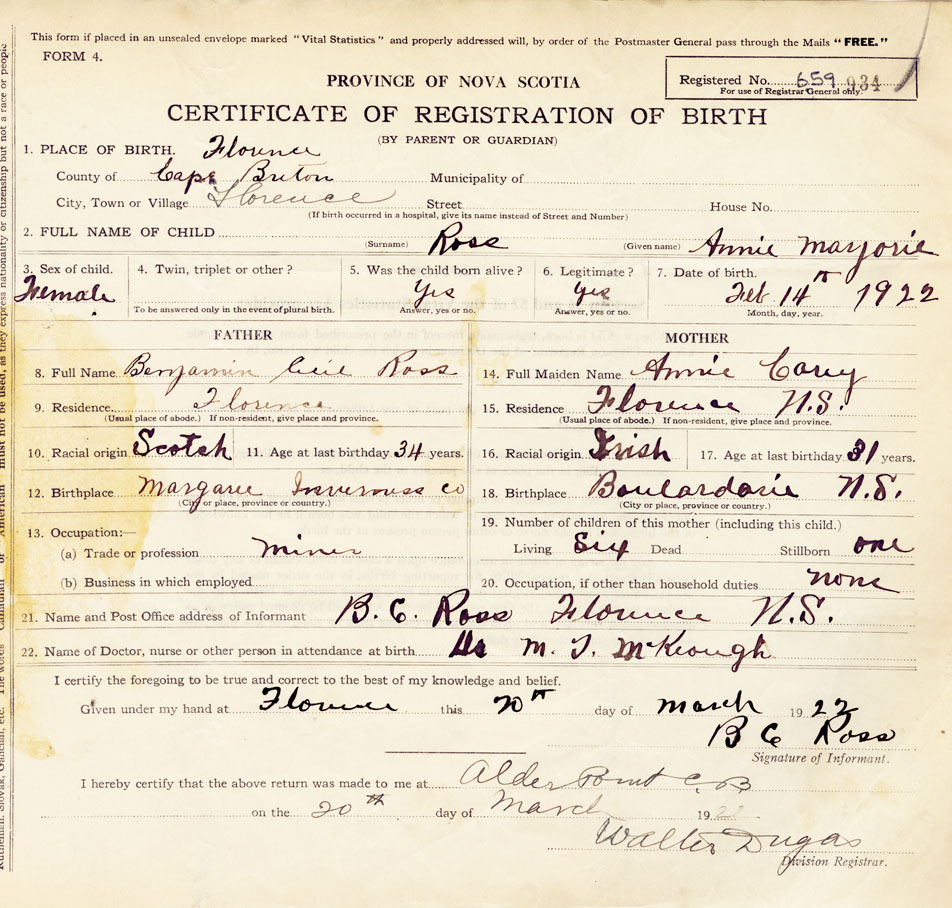 This form if placed in an unsealed envelope marked "Vital Statistics" and properly addressed will, by order of the Postmaster General pass through the Mails "FREE."
FORM 4.
PROVINCE OF NOVA SCOTIA
Registered No. 659 934
For use of Registrar General only.
CERTIFICATE OF REGISTRATION OF BIRTH
(BY PARENT OR GUARDIAN)
1. PLACE OF BIRTH. Florence
County of Cape Breton Municipality of
City, Town or Village Florence Street House No.
(If birth occurred in a hospital, give its name instead of Street and Number)
2. FULL NAME OF CHILD Ross Annie Marjorie
(Surname) (Given name)
3. Sex of child. 4. Twin, triplet or other? 5. Was the child born alive? 6. Legitimate? 7. Date of birth.
Female Yes Yes Feb. 14th 1922
To be answered only in the event of plural birth. Answer, yes or no. Answer, yes or no. Month, day, year.
FATHER MOTHER
8. Full Name Benjamin Cecil Ross 14. Full Maiden Name Annie Carey
9. Residence Florence 15. Residence Florence N.S.
(Usual place of abode.) If non-resident, give place and province. (Usual place of abode.) If non-resident, give place and province.
10. Racial origin Scotch 11. Age at last birthday 34 years. 16. Racial origin Irish 17. Age at last birthday 31 years.
12. Birthplace Margaree Inverness Co 18. Birthplace Boulardarie N.S.
(City or place, province or country.) (City or place, province or country.)
13. Occupation:— 19. Number of children of this mother (including this child.)
(a) Trade or profession Miner Living Six Dead Stillborn one
(b) Business in which employed 20. Occupation, if other than household duties none
21. Name and Post Office address of Informant B. C. Ross Florence N.S.
22. Name of Doctor, nurse or other person in attendance at birth Dr M. T. McKeough
I certify the foregoing to be true and correct to the best of my knowledge and belief.
Given under my hand at Florence this 20th day of March 1922
B C Ross
Signature of Informant.
I hereby certify that the above return was made to me at Alder Point C.B
on the 20th day of March 1922
Walter Dugas
Division Registrar.